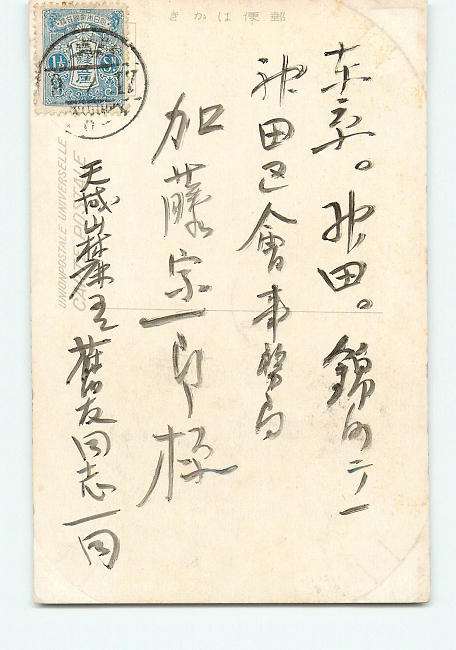 郵便はかき
東京。神田。錦町二ノ一
神田区會事務局
加藤宗一郎様
天城山麓
舊友同志一同
UNION POSTALE UNIVERSELLE
CARTE POSTALE